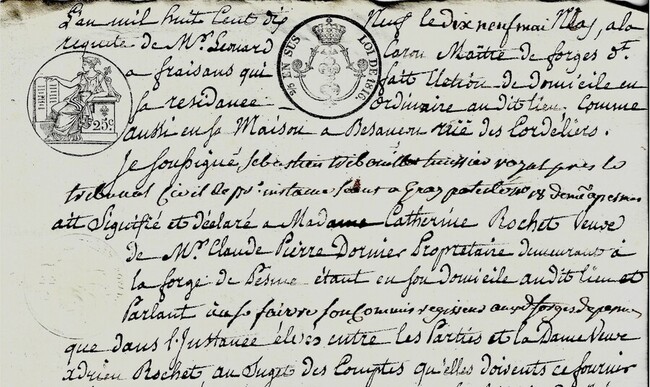 L'an mil huit Cent dix Neuf le dix neuf mai, a la
requete de Mr. Léonard Caron Maître de forges dt.
a fraisans qui fait Election de domicile en
sa residance ordinaire au dit lieu Comme
aussi en sa Maison a Besancon ruë des Cordeliers.
EN SUS
LOI DE 1816.
25c.
Je soussigné Sebastien huissier royal pres le
tribunal Civil de pre. instance Séant a Gray
ait Signifié et déclaré a Madame Catherine Rochet Veuve
de Mr. Claude Pierre Dornier Propriétaire demeurant à
la forge de Pesme étant en son domicile audit lieu et
Parlant a faivre son Commis regisseur forges de pesme
que dans l'Instance élvée entre les Parties et la Dame Veuve
Adrien Rochet au Sujet des Comptes qu'elles doivent se fournir